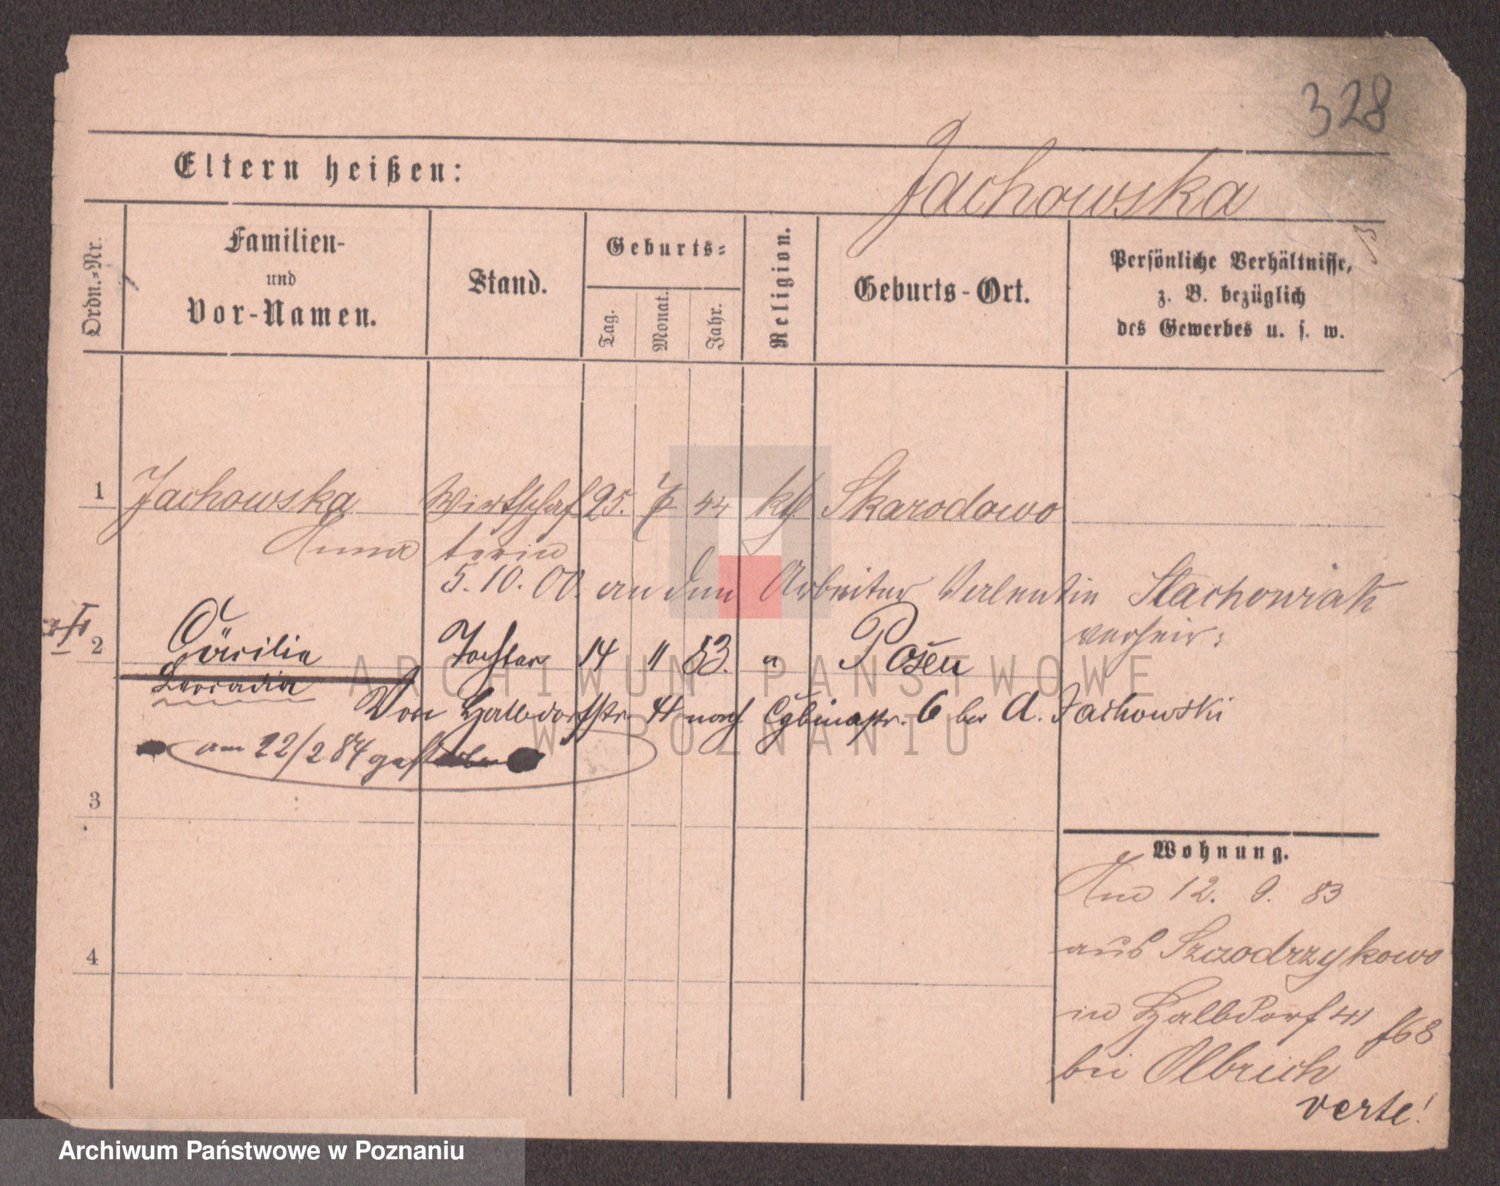 328
Eltern heißen:
Jachowska
Ordn.-Nr.
Familien-
und
Vor-Namen.
Stand.
Geburts-
Tag.
Monat.
Jahr.
Religion.
Geburts-Ort.
Persönliche Verhältnisse,
z. B. bezüglich
des Gewerbes u. s. w.
1 Jachowska Wirthschaf 25. 7 44 kth Skarodowo
Anna terin
5.10.00 an den Arbeiter Valentin Stachowiak
verheir:
2 Cäcilie Tochter 14 11 83. " Posen
Leocadia
Von Halbdorfstr. 41 nach Cybinastr. 6 bei A. Jachowski
am 22/2 84 gestorben
3
Wohnung.
Am 12. 9. 83
aus Szczodrzykowo
4
in Halbdorf 41 f68
bei Olbrich
verte!
ARCHIWUM PAŃSTWOWE
W POZNANIU
Archiwum Państwowe w Poznaniu